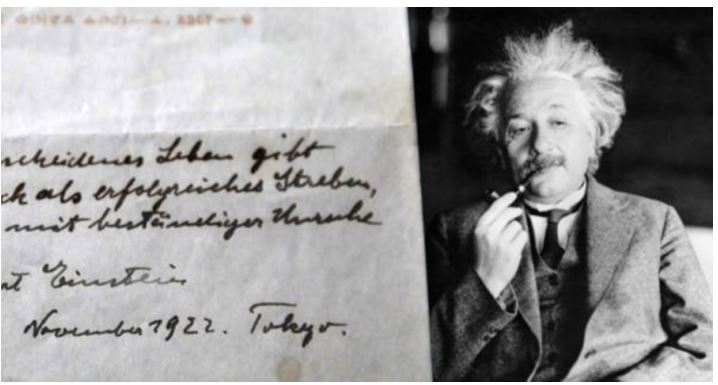 scheidenes Leben gibt
ck als erfolgreiches Streben,
mit beständiger Unruhe
rt Einstein
November 1922. Tokyo.